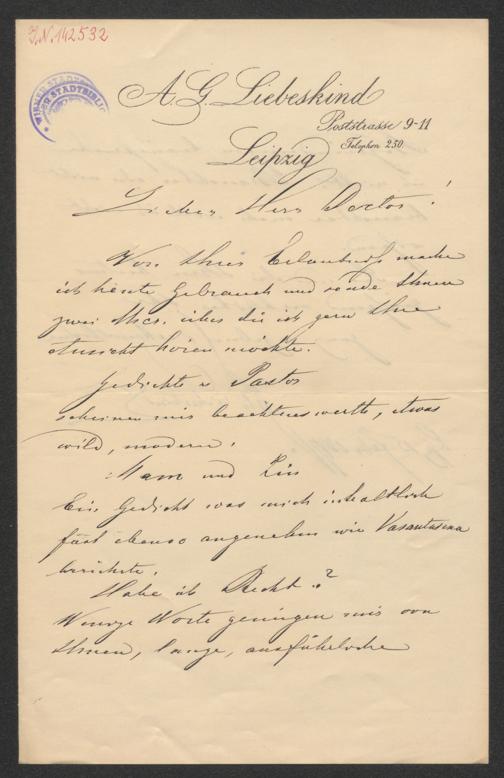 J.N. 142532
WIENER STADTBIBLIO
A. G. Liebeskind
Poststrasse 9-11
Telephon 250.
Leipzig
Lieber Herr Doctor!
Von Ihrer Erlaubniss mache
ich heute Gebrauch und sende Ihnen
zwei Mscs. über die ich gern Ihre
Ansicht hören möchte.
Gedichte v. Pastor
scheinen mir beachtenswerth, etwas
wild, modern.
und
Ein Gedicht was mich inhaltlich
fast ebenso angenehm wie Vasantasena
berührte.
Habe ich Recht?
Wenige Worte genügen mir von
Ihnen, lange, ausführliche